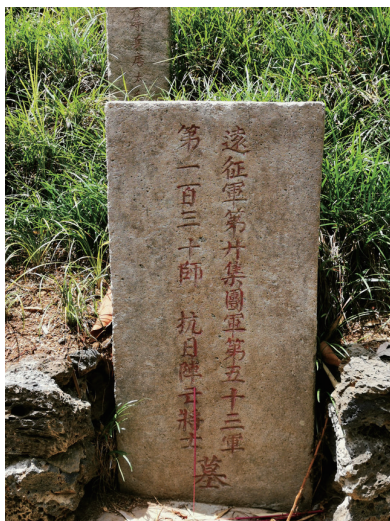 遠征軍第廾集團軍第五十三軍
第一百三十師 抗日陣亡將士
墓